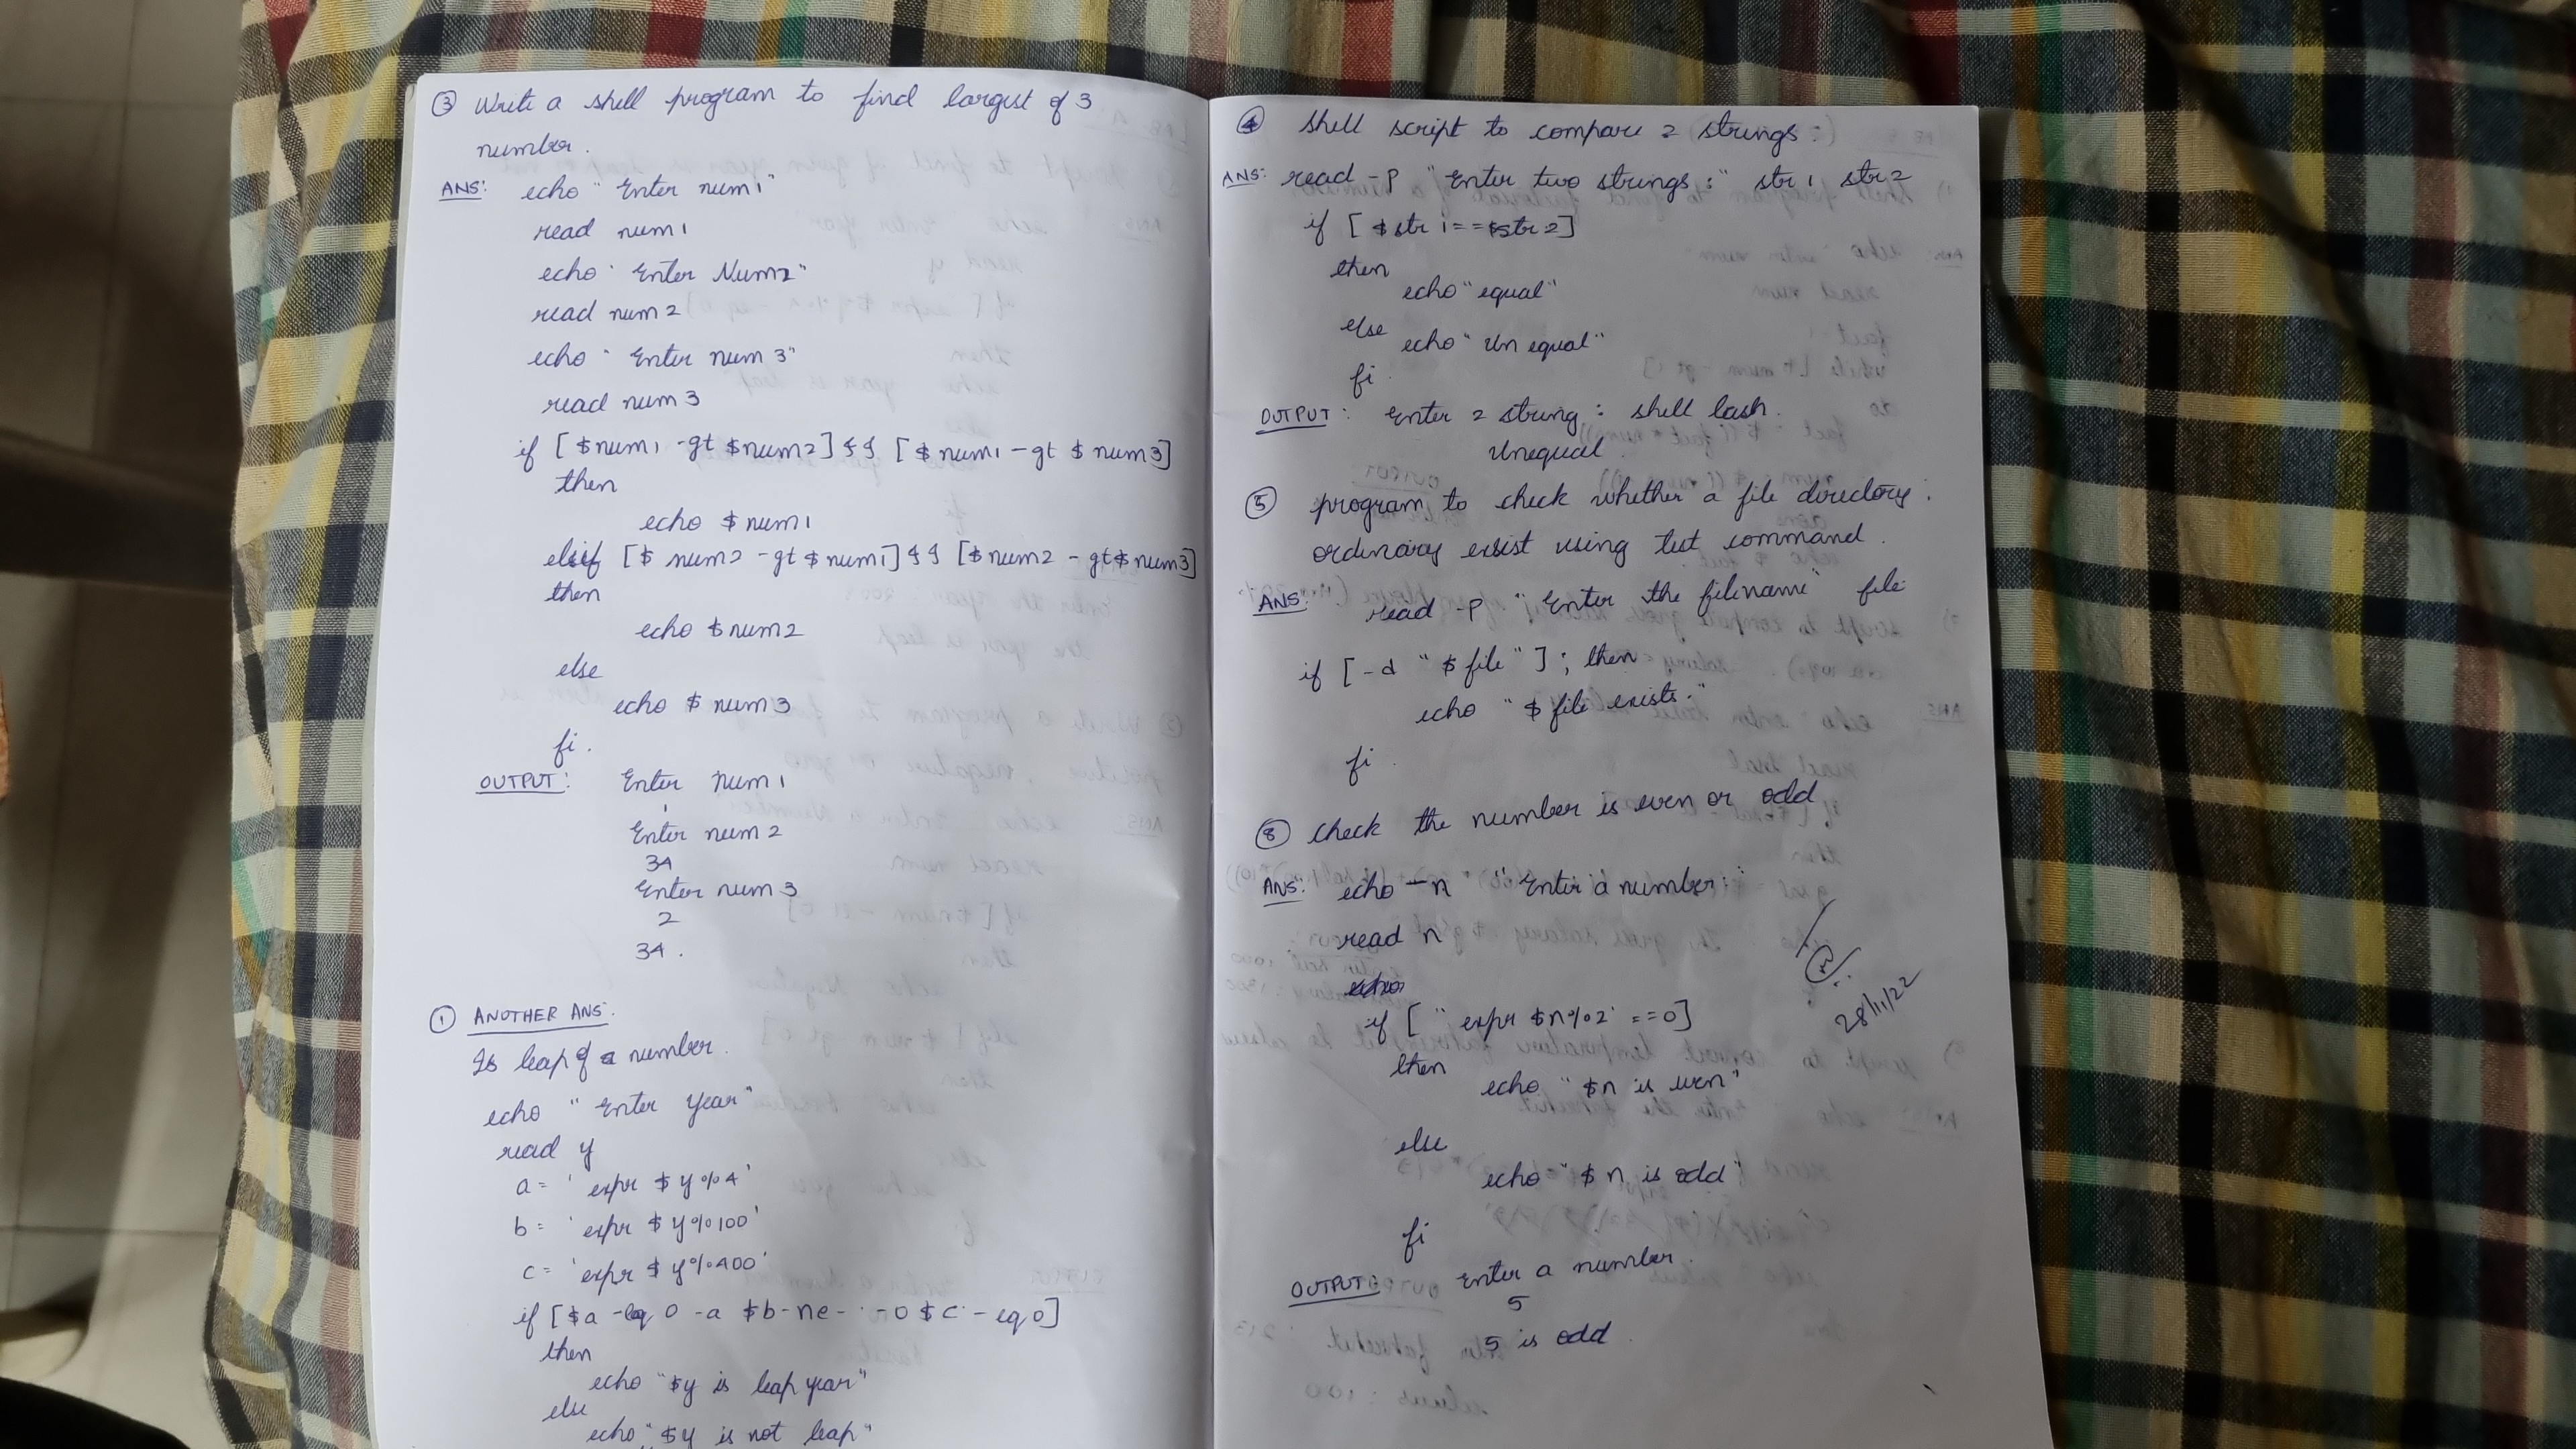 ③ Write a shell program to find largest of 3
number.
ANS: echo "Enter num1"
read num1
echo "Enter Num2"
read num2
echo "Enter num3"
read num3
if [ $num1 -gt $num2 ] && [ $num1 -gt $num3 ]
then
echo $num1
elsif [ $num2 -gt $num1 ] && [ $num2 -gt $num3 ]
then
echo $num2
else
echo $num3
fi.
OUTPUT: Enter num1
1
Enter num2
34
Enter num3
2
34.
① ANOTHER ANS:
Is leap of a number.
echo "Enter year"
read y
a = 'expr $y%4'
b = 'expr $y%100'
c = 'expr $y%400'
if [ $a -eq 0 -a $b -ne - -o $c -eq 0 ]
then
echo "$y is leap year"
else
echo "$y is not leap"
④ Shell script to compare 2 strings:
ANS: read -p "Enter two strings:" str1 str2
if [ $str1 == $str2 ]
then
echo "equal"
else echo "unequal"
fi.
OUTPUT: Enter 2 string: shell lash.
Unequal.
⑤ program to check whether a file directory:
ordinary exist using test command.
ANS: read -p "Enter the filename" file
if [ -d "$file" ]; then
echo "$file exists."
fi.
⑧ check the number is even or odd
ANS: echo -n "Enter a number:"
read n
if [ 'expr $n%2' == 0 ]
then
echo "$n is even"
else
echo "$n is odd"
fi
28/11/22
OUTPUT: Enter a number
5
5 is odd.